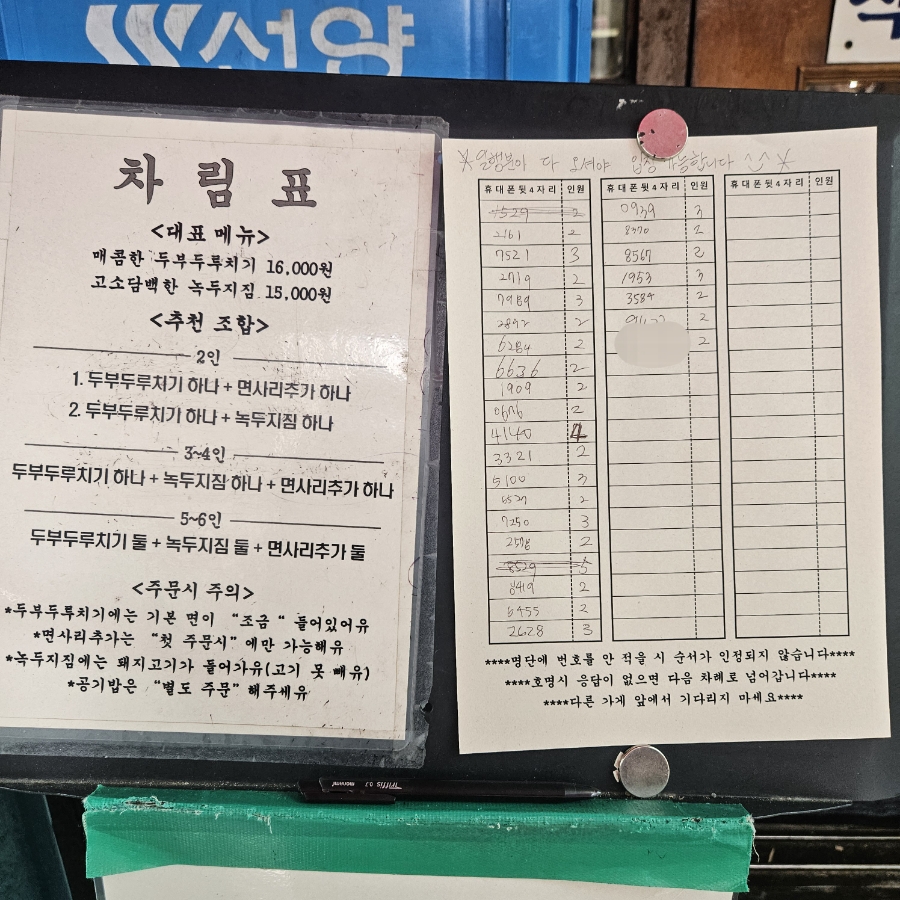 선양
차림표
<대표 메뉴>
매콤한 두부두루치기 16,000원
고소담백한 녹두지짐 15,000원
<추천 조합>
2인
1. 두부두루치기 하나 + 면사리추가 하나
2. 두부두루치기 하나 + 녹두지짐 하나
3~4인
두부두루치기 하나 + 녹두지짐 하나 + 면사리추가 하나
5~6인
두부두루치기 둘 + 녹두지짐 둘 + 면사리추가 둘
<주문시 주의>
*두부두루치기에는 기본 면이 "조금" 들어있어유
*면사리추가는 "첫 주문시"에만 가능해유
*녹두지짐에는 돼지고기가 들어가유(고기 못 빼유)
*공기밥은 "별도 주문" 해주세유
일행분이 다 오셔야 입장 가능합니다 ^^
휴대폰뒷4자리 인원
2161 2
7521 3
2719 2
7989 3
2892 2
6284 2
6636 2
1909 2
2
4140 4
3321 2
5100 3
2
7250 3
2578 2
8529 5
8419 2
5455 2
2628 3
휴대폰뒷4자리 인원
0939 3
8370 2
8567 2
1953 3
3584 2
2
2
휴대폰뒷4자리 인원
****명단에 번호를 안 적을 시 순서가 인정되지 않습니다****
****호명시 응답이 없으면 다음 차례로 넘어갑니다****
****다른 가게 앞에서 기다리지 마세요****
monami